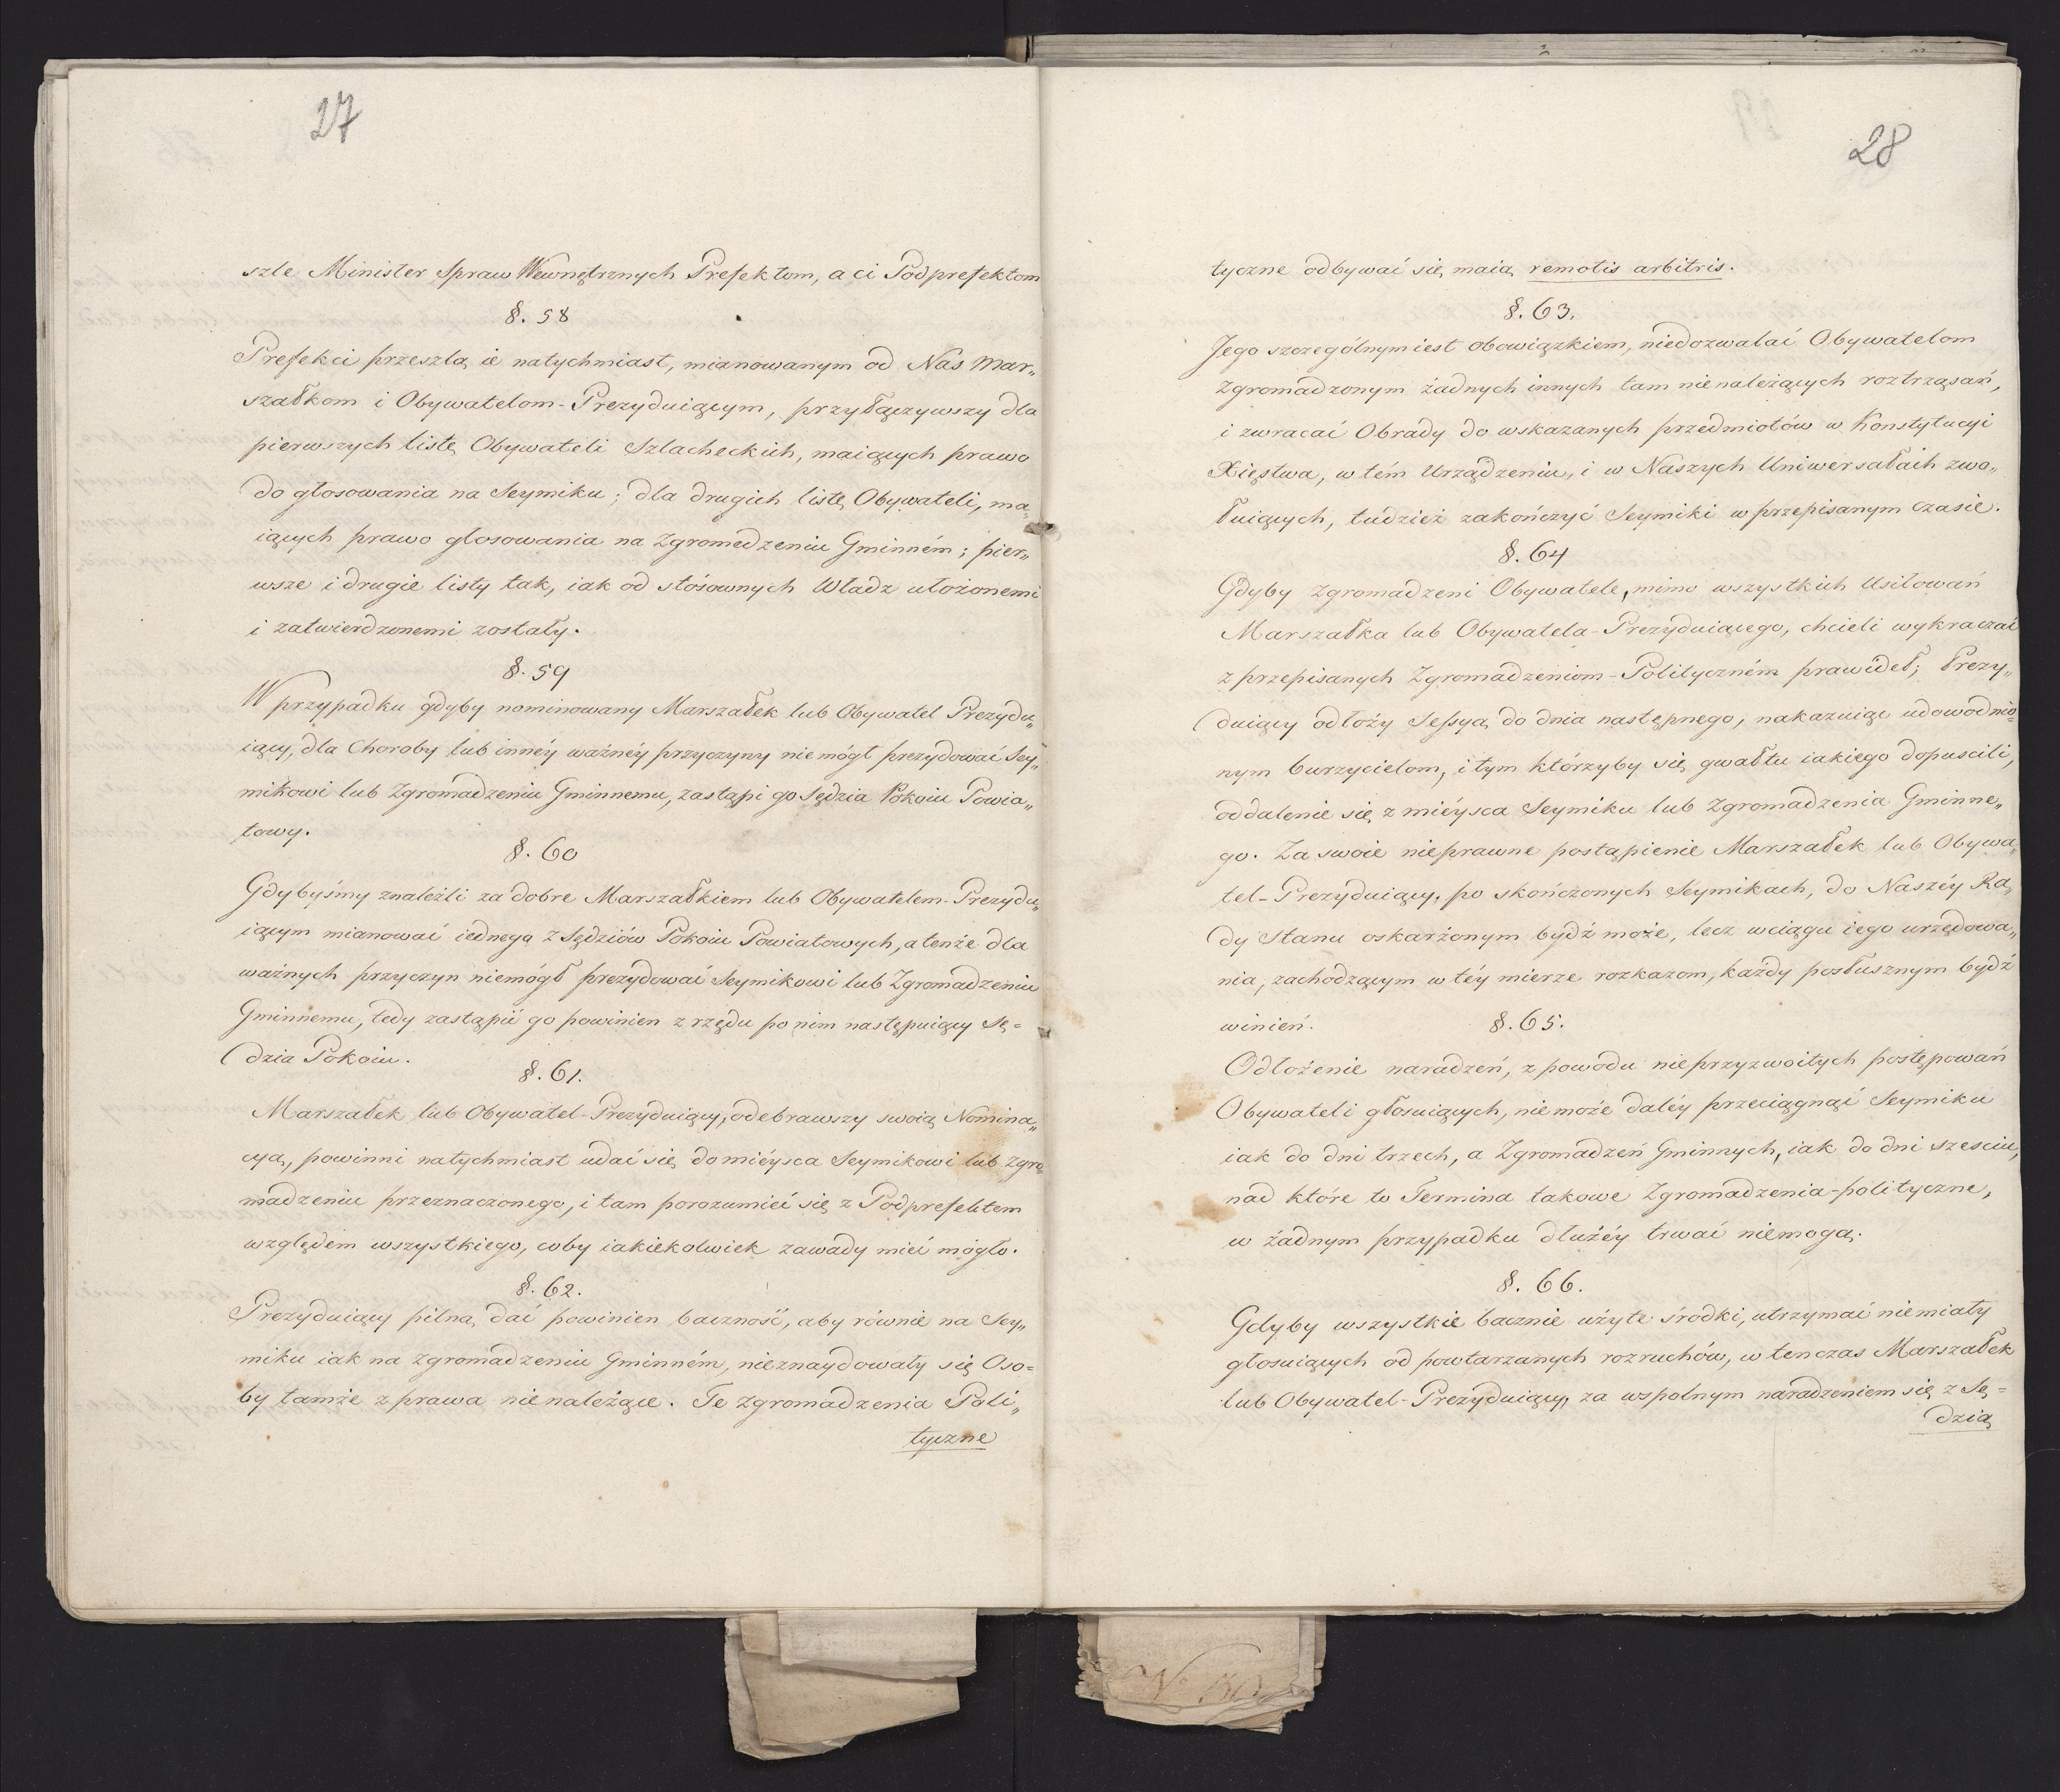 27
szle Minister Spraw Wewnętrznych Prefektom, a ci Podprefektom
§. 58
Prefekci przeszlą ie natychmiast, mianowanym od Nas Mar„
szałkom i Obywatelom-Prezyduiącym, przyłączywszy dla
pierwszych listę Obywateli Szlacheckich, maiących prawo
do głosowania na Seymiku; dla drugich listę Obywateli, ma„
iących prawo głosowania na Zgromadzeniu Gminném; pier„
wsze i drugie listy tak, iak od stósownych Władz ułożonemi
i zatwierdzonemi zostały.
§. 59
W przypadku gdyby nominowany Marszałek lub Obywatel Prezydu„
iący, dla Choroby lub innéy ważnéy przyczyny nie mógł prezydować Sey„
mikowi lub Zgromadzeniu Gminnemu, zastąpi go Sędzia Pokoiu Powia„
towy.
§. 60
Gdybyśmy znaleźli za dobre Marszałkiem lub Obywatelem-Prezydu„
iącym mianować iednego z Sędziów Pokoiu Powiatowych, a tenże dla
ważnych przyczyn niemógł prezydować Seymikowi lub Zgromadzeniu
Gminnemu, tedy zastąpić go powinien z rzędu po nim następuiący Sę=
dzia Pokoiu.
§. 61.
Marszałek lub Obywatel-Prezyduiący, odebrawszy swoią Nomina„
cyą, powinni natychmiast udać się do miéysca Seymikowi lub Zgro=
madzeniu przeznaczonego, i tam porozumieć się z Podprefektem
względem wszystkiego, coby iakiekolwiek zawady mieć mogło.
§. 62.
Prezyduiący pilną dać powinien baczność, aby równie na Sey„
miku iak na Zgromadzeniu Gminném, nieznaydowały się Oso=
by tamże z prawa nienależące. Te Zgromadzenia Poli„
tyczne
28
tyczne odbywać się maią remotis arbitris.
§. 63.
Jego szczególnym iest obowiązkiem, niedozwalać Obywatelom
Zgromadzonym żadnych innych tam nienależących roztrząsań,
i zwracać Obrady do wskazanych przedmiotów w Konstytucyi
Xięstwa, w tém Urządzeniu, i w Naszych Uniwersałach zwo„
łuiących, tudzież zakończyć Seymiki w przepisanym czasie.
§. 64
Gdyby Zgromadzeni Obywatele, mimo wszystkich Usiłowań
Marszałka lub Obywatela-Prezyduiącego, chcieli wykraczać
z przepisanych Zgromadzeniom-Polityczném prawideł; Prezy„
duiący odłoży Sessyą do dnia następnego, nakazuiąc udowodnio=
nym burzycielom, i tym którzyby się gwałtu iakiego dopuscili,
oddalenie się z miéysca Seymiku lub Zgromadzenia Gminne„
go. Za swoie nieprawne postąpienie Marszałek lub Obywa„
tel-Prezyduiący, po skończonych Seymikach, do Naszéy Ra„
dy Stanu oskarżonym bydź może, lecz wciągu iego urzędowa„
nia, zachodzącym w téy mierze rozkazom, każdy posłusznym bydź
winień.
§. 65.
Odłożenie naradzeń, z powodu nieprzyzwoitych postępowań
Obywateli głosuiących, niemoże daléy przeciągnąć Seymiku
iak do dni trzech, a Zgromadzeń Gminnych, iak do dni szesciu,
nad które to Termina takowe Zgromadzenia-polityczne,
w żadnym przypadku dłużéy trwać niemogą.
§. 66.
Gdyby wszystkie bacznie użyte środki, utrzymać niemiały
głosuiących od powtarzanych rozruchów, wtenczas Marszałek
lub Obywatel-Prezyduiący, za wspolnym naradzeniem się z Sę=
dzią